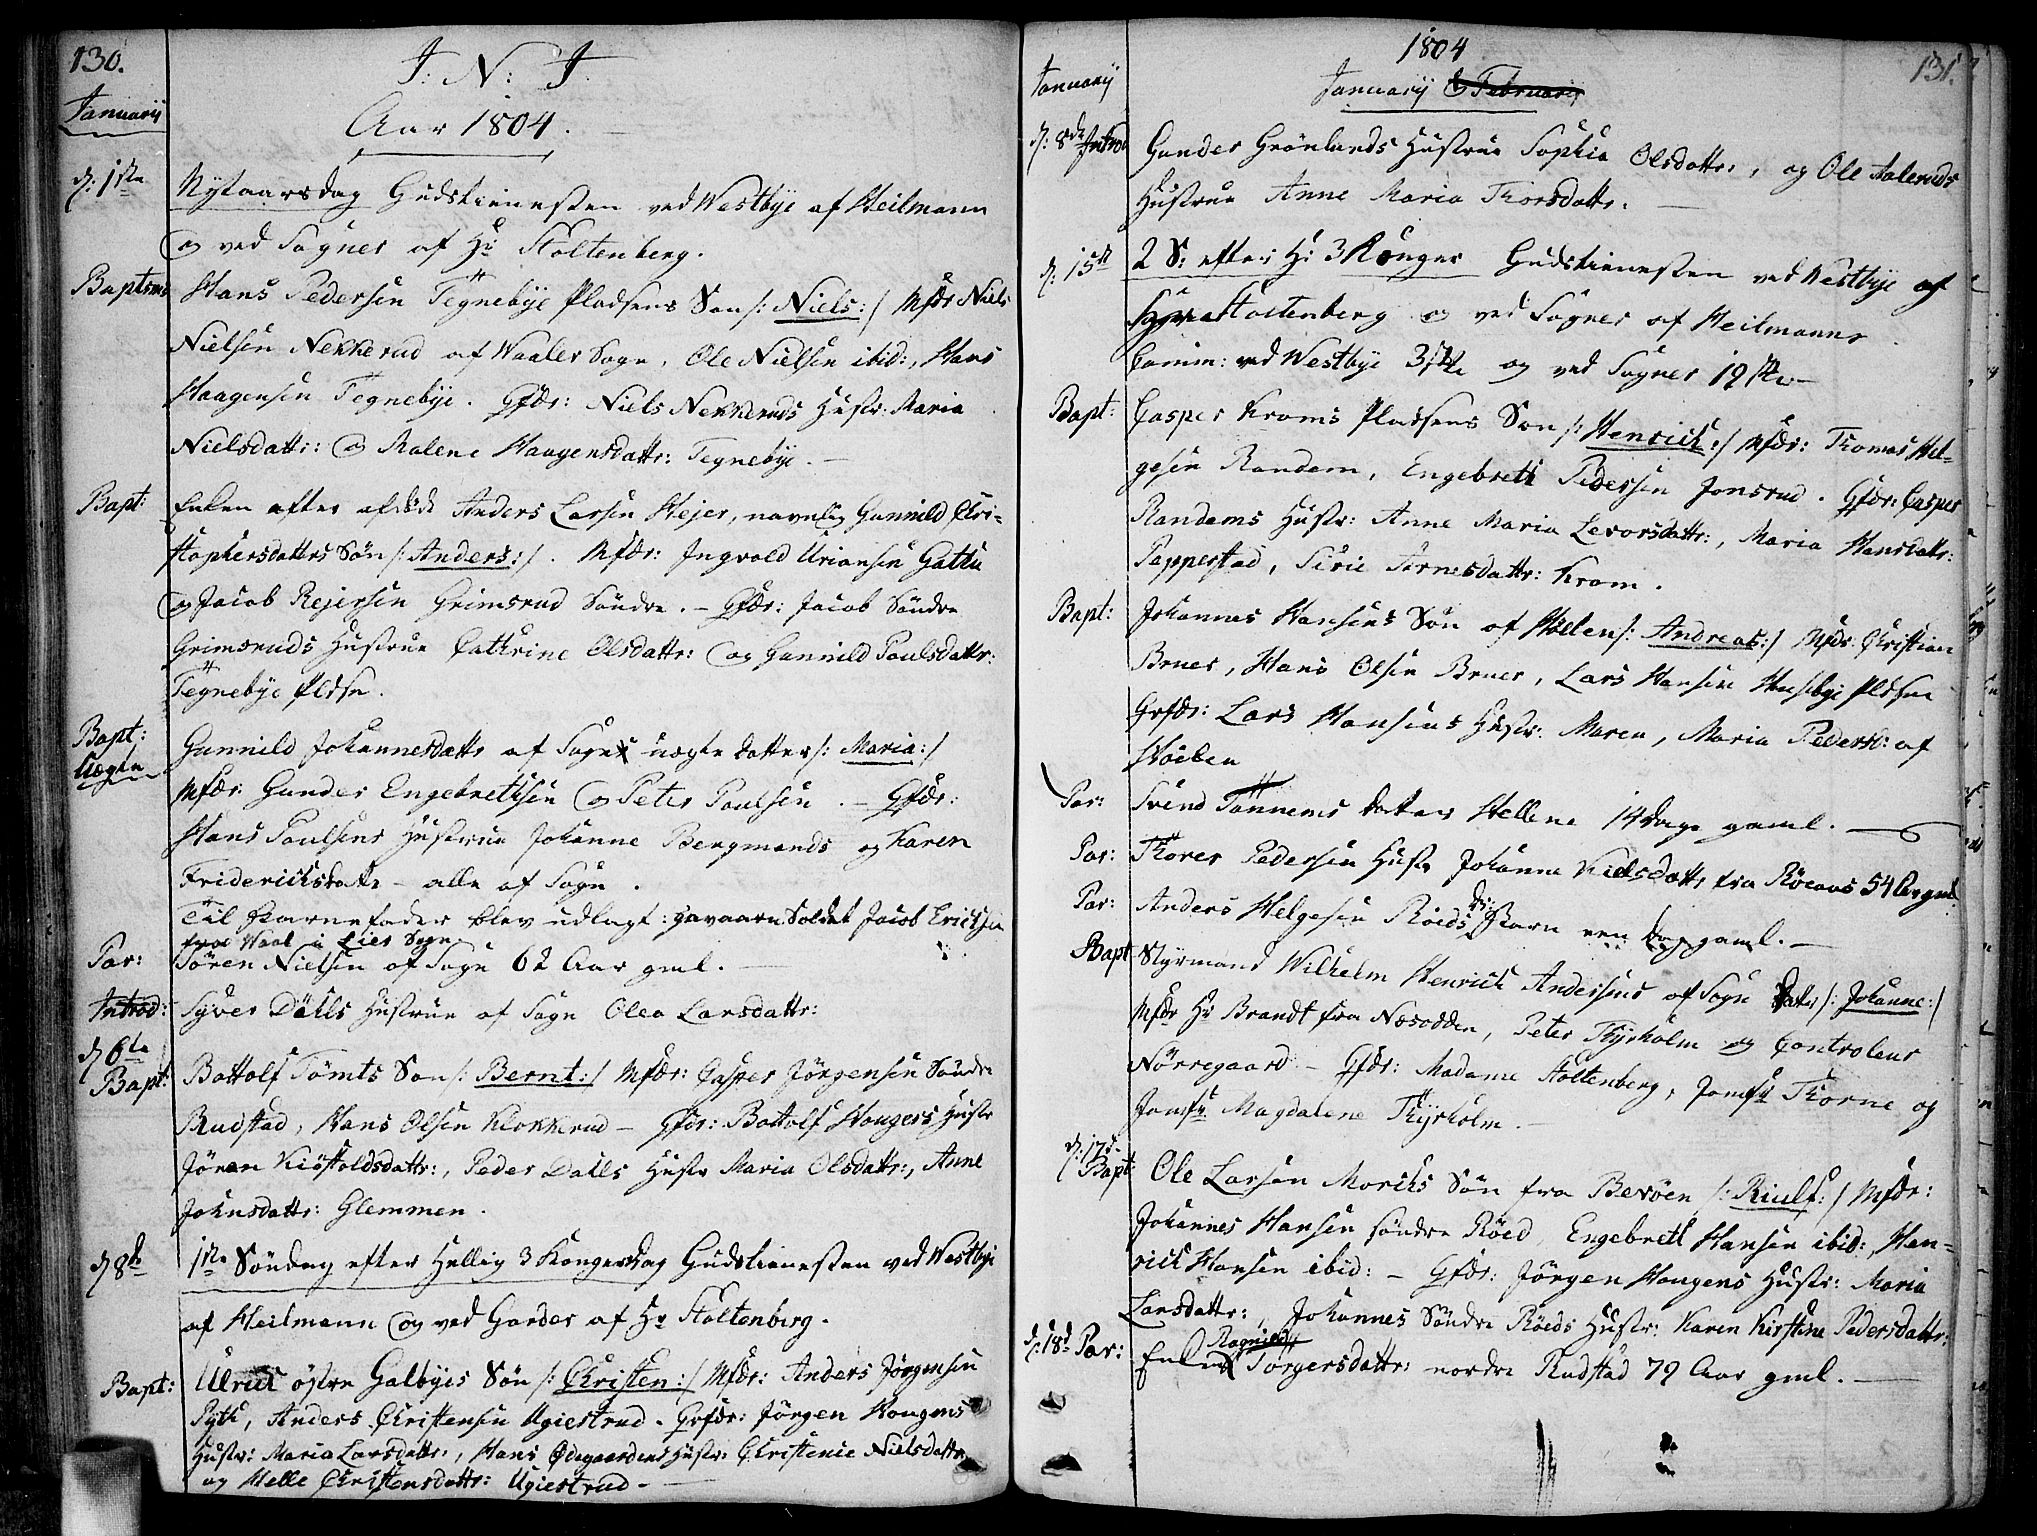 130.
J: N: J
Januarij
Aar 1804.
d: 1ste Nytaarsdag Gudstienesten ved Westbye af Heilmann
og ved Sogner af Hr Stoltenberg.
Baptsme Hans Pedersen Tegnebye Pladsens Søn /: Niels: / Mfdr: Niels
Nielsen Nekkerud af Waaler Sogn, Ole Nielsen ibid:, Hans
Haagensen Tegnebye. Gfdr: Niels Nekkeruds Hustr: Maria
Nielsdattr: og Malene Haagensdattr: Tegnebye. —
Bapt: Enken efter afdøde Anders Larsen Hejer, navnlig Gunnild Chri-
stophersdatters Søn /: Anders: /. Mfdr: Ingvald Uriansen Gattu
og Jacob Rejersen Grimsrud Søndre. — Gfdr: Jacob Søndre
Grimsruds Hustrue Cathrine Olsdattr: og Gunnild Poulsdattr:
Tegnebye Pldsn.
Bapt: Uægte Gunnild Johannesdattr af Sogn uægte datter /: Maria: /
Mfdr: Gunder Engebrethsen og Peter Poulsen. — Gfdr:
Hans Poulsens Hustrue Johanne Bergmands og Karen
Friderichsdattr — alle af Sogn.
Til Barnefader blev udlagt: Soldat Jacob Erichsen
fra Waal i Lier Sogn
Par: Søren Nielsen af Sogn 62 Aar gml. —
Introd: Syver Dahls Hustrue af Sogn Olea Larsdattr:
d 6te
Bapt: Bottolf Tømts Søn /: Bernt: / Mfdr: Casper Jørgensen Søndre
Rudstad, Hans Olsen Klokkerud — Gfdr: Bottolf Hougers Hustr
Jøran Kiøstoldsdattr:, Peder Dahls Hustr Maria Olsdattr:, Anne
Johnsdattr: Glemmen.
d 8de 1ste Søndag efter Hellig 3 Kongersdag Gudstienesten ved Westbye
af Heilmann og ved Garder af Hr Stoltenberg.
Bapt: Ulrik østre Galbyes Søn /: Christen: / Mfdr: Anders Jørgensen
Pyth, Anders Christensen Ugiestrud. Gfdr: Jørgen Hougens
Hustr: Maria Larsdattr:, Hans Ødegaardens Hustr: Christence Nielsdattr
og Helle Christensdattr: Ugiestrud —
1804
131.
Januarij
Januarij & Februarij
d: 8de Introd Gunder Grønlunds Hustrue Sophia Olsdattr:, og Ole Aaleruds
Hustrue Anne Maria Thorsdattr. —
d: 15de 2 S: efter H: 3 Konger Gudstienesten ved Westbye af
Stoltenberg og ved Sogner af Heilmann
Comm: ved Westbye 3 stk og ved Sogner 19 stk —
Bapt: Casper Kroms Pladsens Søn /: Henrich: / Mfdr: Thomas Hel-
gesen Randem, Engebreth Pedersen Jonsrud. Gfdr: Casper
Randems Hustr: Anne Maria Levorsdattr:, Maria Hansdattr:
Pepperstad, Sirie Arnesdattr: Krom.
Bapt: Johannes Hansens Søn af Hølen /: Andreas: / Mfdr. Christian
Bruer, Hans Olsen Bruer, Lars Hansen Husebye Pldsen
Gvfdr: Lars Hansens Hustr: Maren, Maria Pedersd: af
Hølen
Par: Svend Tannems datter Hellene 14 Dage gaml. —
Par: Thorer Pedersen Hustr Johanne Nielsdattr fra Røeaas 54 Aar gml
Par: Anders Helgesen Røeds Barn een dag gaml. —
Bapt Styrmand Wilhelm Henrich Andersens af Sogn Datter /: Johanne: /
Mfdr Hr Brandt fra Næsodden, Peter Thyrholm og Controleur
Nørregaard — Gfdr: Madame Stoltenberg, Jomfr Thorne og
Jomfr Magdalene Thyrholm. —
d: 17de
Bapt: Ole Larsen Morchs Søn fra Bevøen /: Riulf: / Mfdr:
Johannes Hansen søndre Røed, Engebreth Hansen ibid:, Hen-
rich Hansen ibid: — Gfdr: Jørgen Hougens Hustr: Maria
Larsdattr:, Johannes Søndre Røeds Hustr: Karen Kirstine Pedersdattr:
d: 18de Par: Enken Ragnild Torgersdattr: nordre Rudstad 79 Aar gml. —